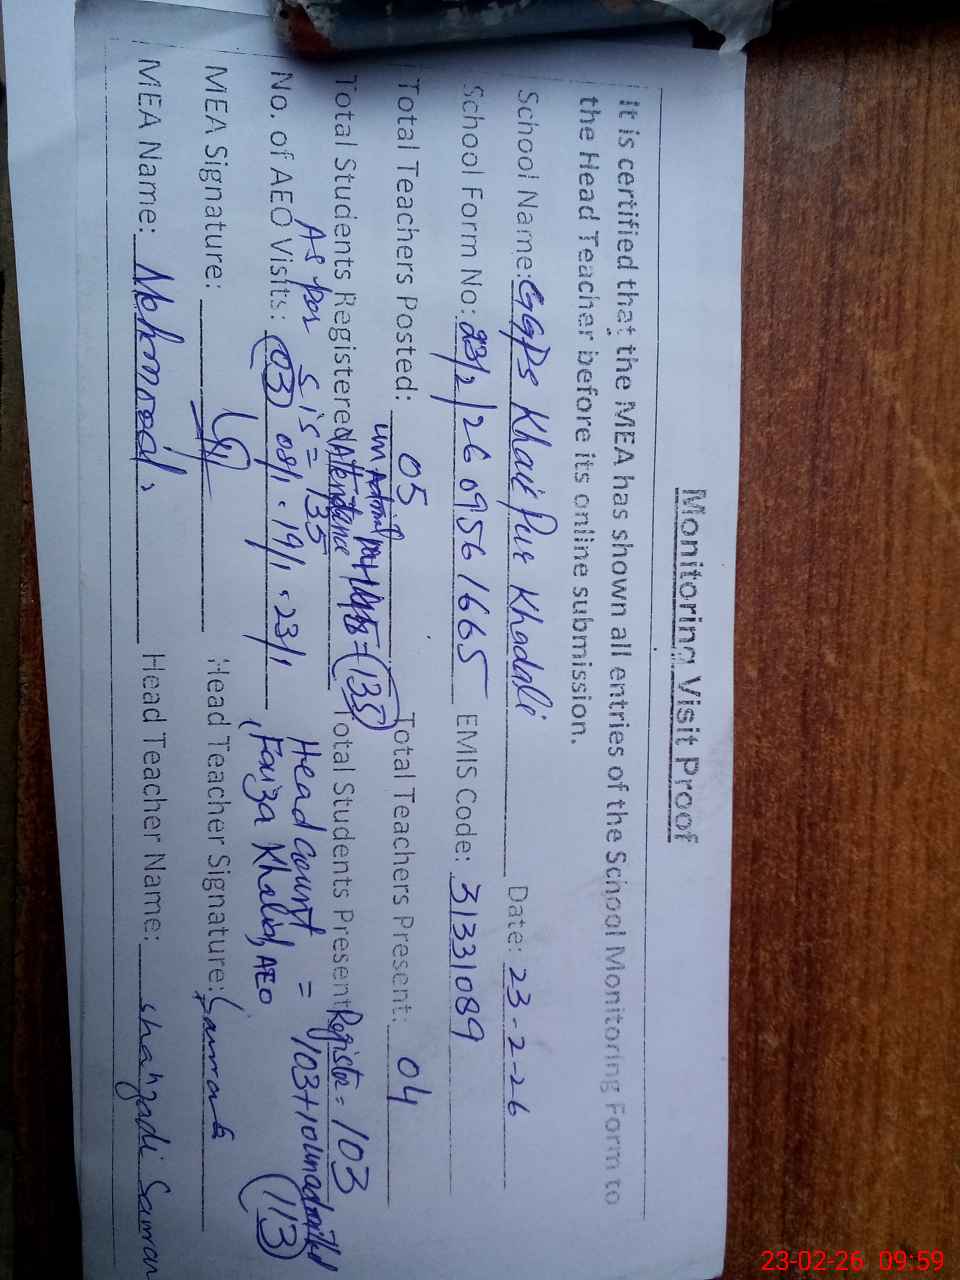 Monitoring Visit Proof
It is certified that the MEA has shown all entries of the School Monitoring Form to
the Head Teacher before its online submission.
School Name: GGPS Khair Pur Khadali Date: 23-2-26
School Form No: 23/2/26 0956 1665 EMIS Code: 31331089
Total Teachers Posted: 05 Total Teachers Present: 04
Total Students Registered Attendance = (135) Total Students Present Register = 103
As per SIS = 135 Head count = 103+10 unadmitted (113)
No. of AEO Visits: (03) 08/1, 19/1, 23/1, Faiza Khalid, AEO
MEA Signature: Head Teacher Signature: Saman
MEA Name: Mehmood Head Teacher Name: Shahzadi Saman
23-02-26 09:59